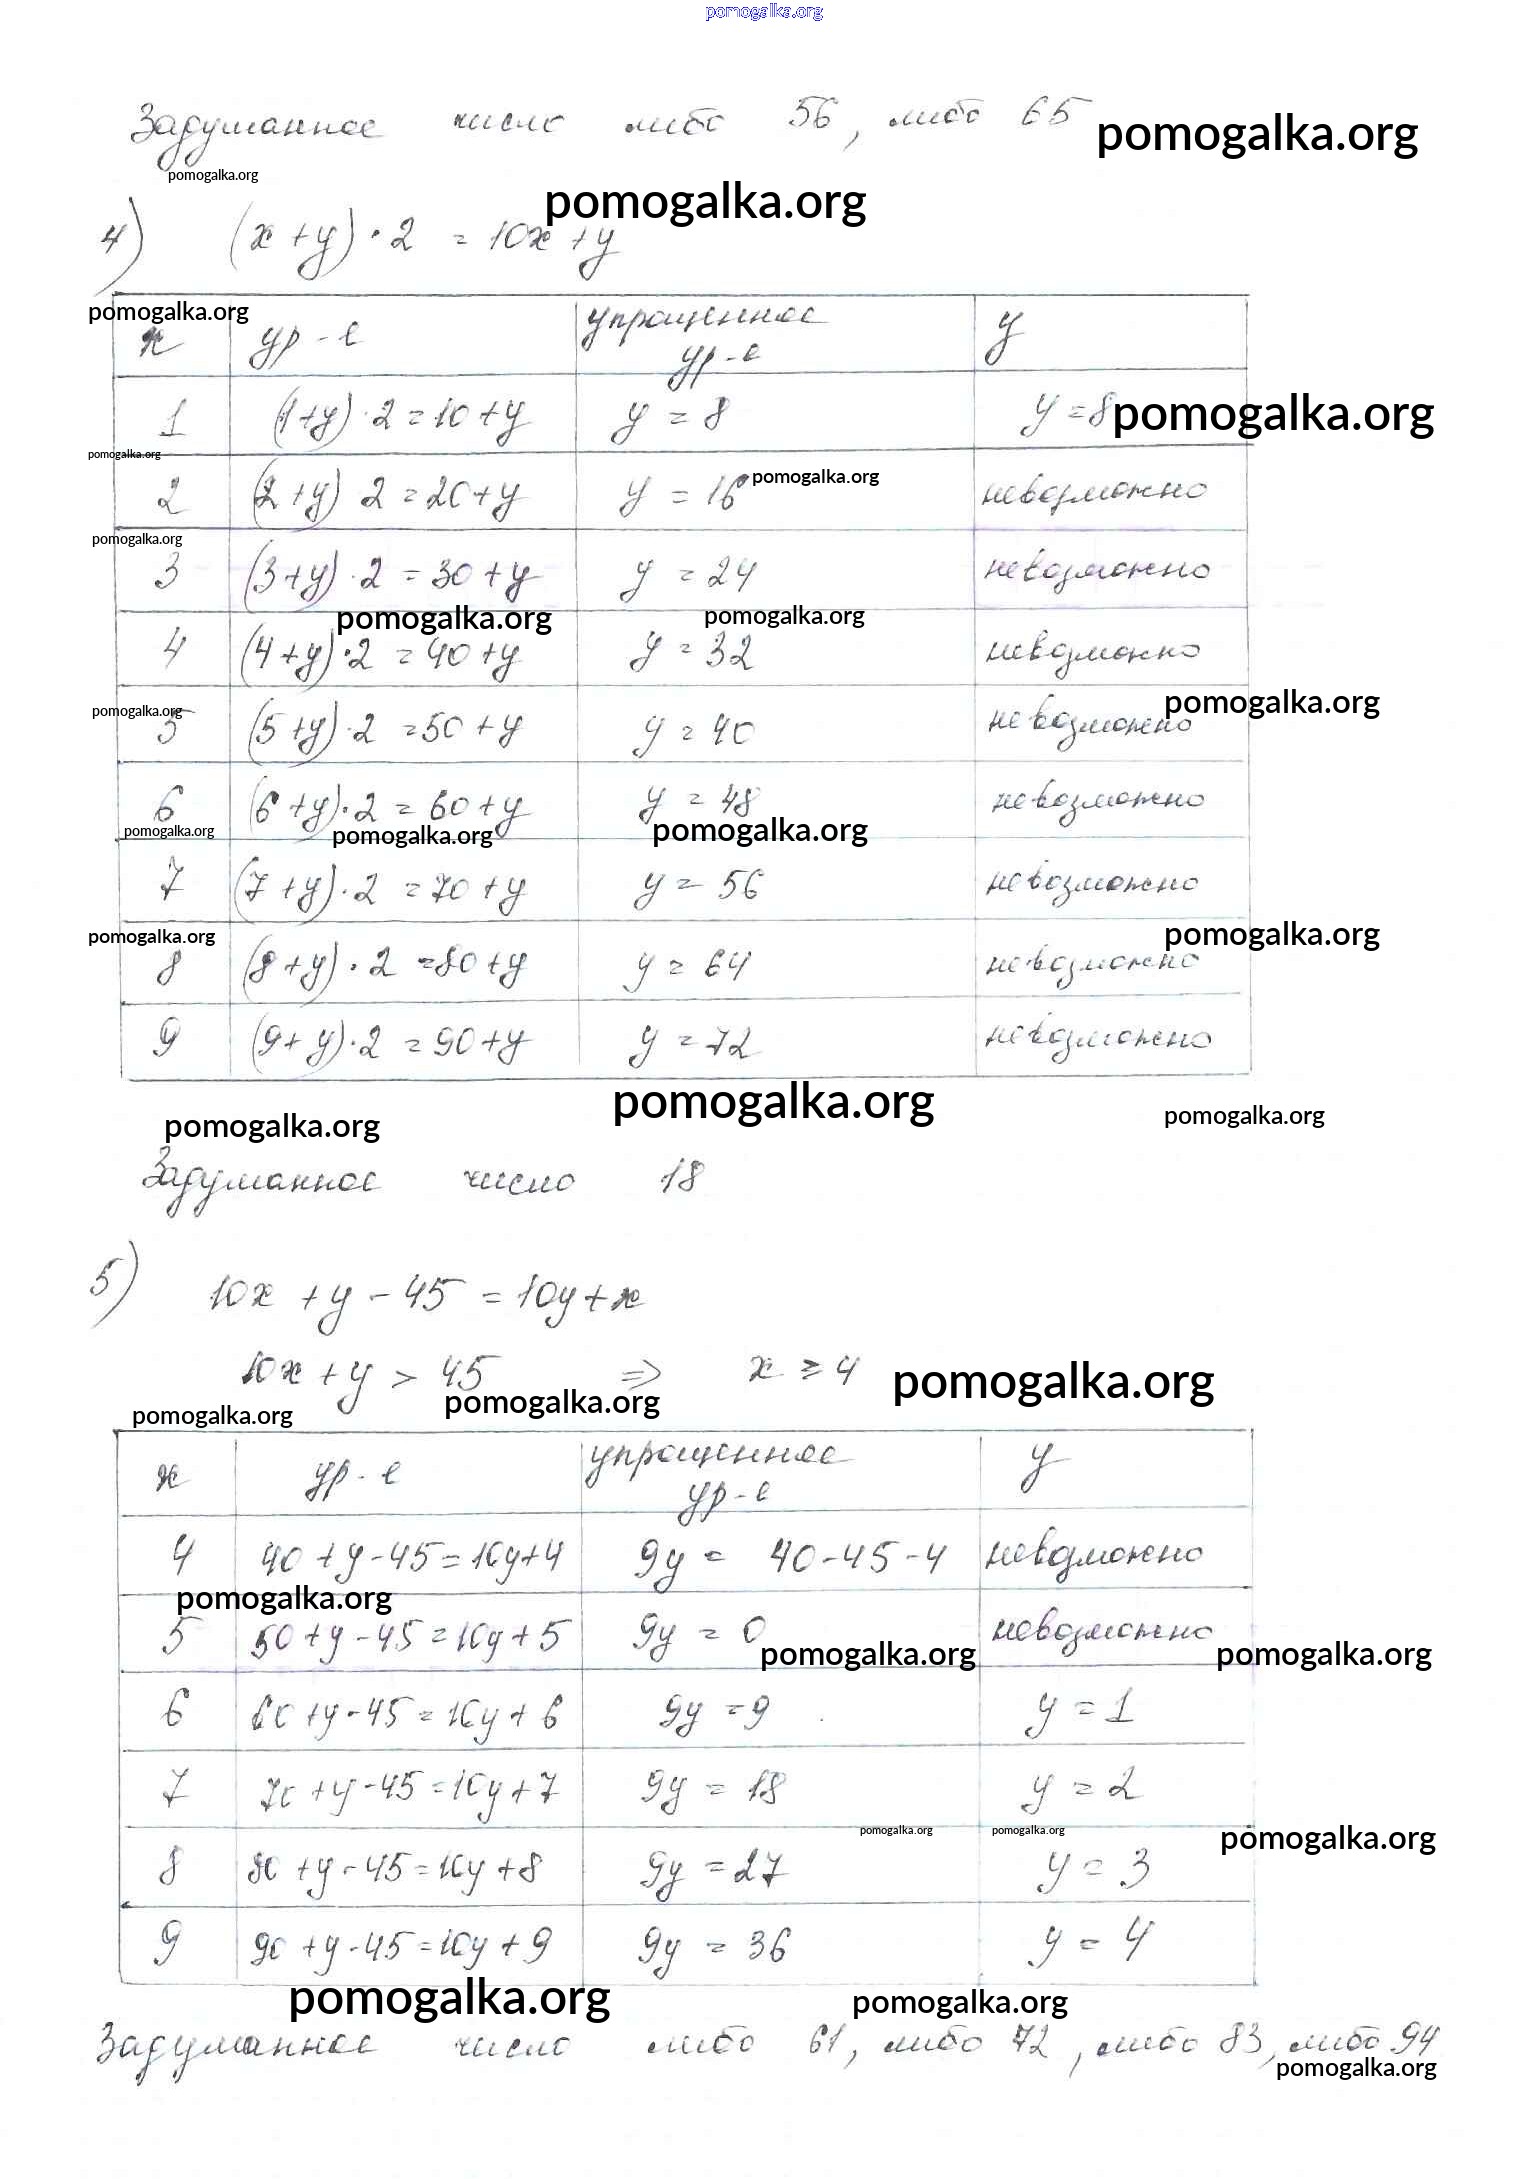 pomogalka.org
Задуманное число либо 56, либо 65 pomogalka.org
pomogalka.org
pomogalka.org
4) (x+y)·2 = 10x+y
pomogalka.org
x ур-е упрощенное ур-е y
1 (1+y)·2=10+y y = 8 y=8 pomogalka.org
pomogalka.org
2 (2+y) 2=20+y y = 16 pomogalka.org невозможно
pomogalka.org
3 (3+y)·2=30+y y = 24 невозможно
pomogalka.org pomogalka.org
4 (4+y)·2=40+y y = 32 невозможно
pomogalka.org pomogalka.org
5 (5+y)·2=50+y y = 40 невозможно
6 (6+y)·2=60+y y = 48 невозможно
pomogalka.org pomogalka.org pomogalka.org
7 (7+y)·2=70+y y = 56 невозможно
pomogalka.org pomogalka.org
8 (8+y)·2=80+y y = 64 невозможно
9 (9+y)·2=90+y y = 72 невозможно
pomogalka.org pomogalka.org pomogalka.org
Задуманное число 18
5) 10x+y-45=10y+x
10x+y > 45 ⇒ x ≥ 4 pomogalka.org
pomogalka.org pomogalka.org
x ур-е упрощенное ур-е y
4 40+y-45=10y+4 9y = 40-45-4 невозможно
pomogalka.org
5 50+y-45=10y+5 9y = 0 невозможно
pomogalka.org pomogalka.org
6 60+y-45=10y+6 9y=9 y=1
7 70+y-45=10y+7 9y = 18 y = 2
pomogalka.org pomogalka.org pomogalka.org
8 80+y-45=10y+8 9y=27 y = 3
9 90+y-45=10y+9 9y = 36 y = 4
pomogalka.org pomogalka.org
Задуманное число либо 61, либо 72, либо 83, либо 94
pomogalka.org